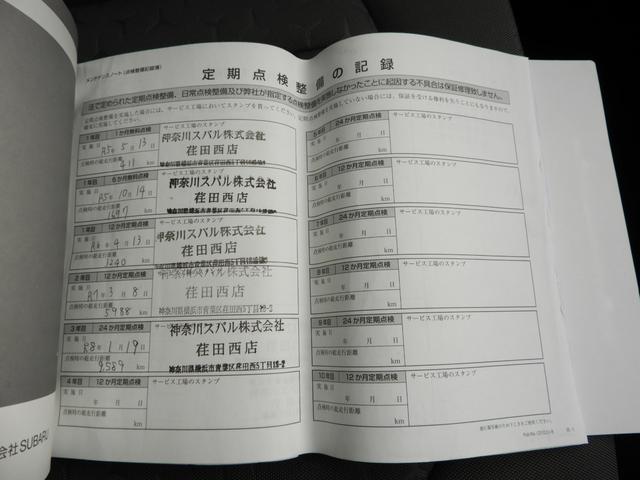 メンテナンスノート(点検整備記録簿)
定期点検整備の記録
法で定められた定期点検整備、日常点検整備及び弊社が指定する点検整備を実施しなかったことに起因する不具合は保証修理致しません。
1年目 1か月無料点検
サービス工場のスタンプ
実施日 R5年 5月 13日
神奈川スバル株式会社
荏田西店
点検時の総走行距離
411 km
1年目 6か月無料点検
サービス工場のスタンプ
実施日 R5年 10月 14日
神奈川スバル株式会社
荏田西店
点検時の総走行距離
km
1年目 12か月定期点検
サービス工場のスタンプ
実施日
4月 13日
神奈川スバル株式会社
荏田西店
点検時の総走行距離
km
2年目 12か月定期点検
実施日 R7年 3月 8日
神奈川スバル株式会社
荏田西店
点検時の総走行距離
5988 km
神奈川県横浜市青葉区荏田西5丁目13-2
3年目 24か月定期点検
実施日 R8年 1月 19日
神奈川スバル株式会社
荏田西店
点検時の総走行距離
9,589 km
神奈川県横浜市青葉区荏田西5丁目13-2
4年目 12か月定期点検
サービス工場のスタンプ
実施日
年 月 日
点検時の総走行距離
km
5年目 24か月定期点検
サービス工場のスタンプ
実施日
年 月 日
点検時の総走行距離
km
6年目 12か月定期点検
サービス工場のスタンプ
実施日
年 月 日
点検時の総走行距離
km
7年目 24か月定期点検
サービス工場のスタンプ
実施日
年 月 日
点検時の総走行距離
km
8年目 12か月定期点検
サービス工場のスタンプ
実施日
年 月 日
点検時の総走行距離
km
9年目 24か月定期点検
サービス工場のスタンプ
実施日
年 月 日
点検時の総走行距離
km
10年目 12か月定期点検
サービス工場のスタンプ
実施日
年 月 日
点検時の総走行距離
km
会社SUBARU